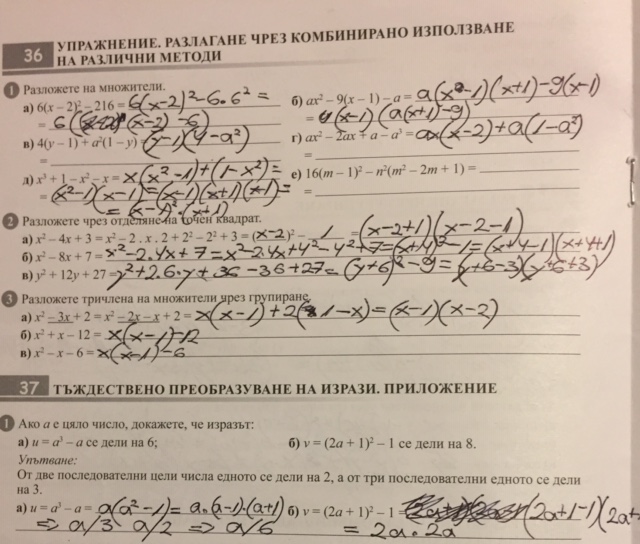 36 УПРАЖНЕНИЕ. РАЗЛАГАНЕ ЧРЕЗ КОМБИНИРАНО ИЗПОЛЗВАНЕ
НА РАЗЛИЧНИ МЕТОДИ
1 Разложете на множители.
а) 6(x – 2)² – 216 = 6(x-2)²-6.6² =
= 6 (x-2) -6)
б) ax² – 9(x – 1) – a = a(x²-1)(x+1)-9(x-1)
= (x-1)(a(x+1)-9)
в) 4(y – 1) + a²(1 – y) = (y-1)(4-a²)
=
г) ax² – 2ax + a – a³ = ax(x-2)+a(1-a²)
=
д) x³ + 1 – x² – x = x(x²-1)+(1-x²)=
= (x²-1)(x-1)=(x-1)(x+1)(x-1)=
= (x-1)².(x+1)
е) 16(m – 1)² – n²(m² – 2m + 1) =
=
2 Разложете чрез отделяне на точен квадрат.
а) x² – 4x + 3 = x² – 2 . x . 2 + 2² – 2² + 3 = (x-2)² – 1 =(x-2+1)(x-2-1)
б) x² – 8x + 7 = x²-2.4x+7=x²-2.4x+4²-4²+7=(x+4)²-1=(x+4-1)(x+4+1)
в) y² + 12y + 27 = y²+2.6.y+36-36+27=(y+6)²-9=(y+6-3)(y+6+3)
3 Разложете тричлена на множители чрез групиране.
а) x² – 3x + 2 = x² – 2x – x + 2 = x(x-1)+2(1-x)=(x-1)(x-2)
б) x² + x – 12 = x(x-1)-12
в) x² – x – 6 = x(x-1)-6
37 ТЪЖДЕСТВЕНО ПРЕОБРАЗУВАНЕ НА ИЗРАЗИ. ПРИЛОЖЕНИЕ
1 Ако a е цяло число, докажете, че изразът:
а) u = a³ – a се дели на 6;
б) v = (2a + 1)² – 1 се дели на 8.
Упътване:
От две последователни цели числа едното се дели на 2, а от три последователни едното се дели
на 3.
а) u = a³ – a = a(a²-1)=a.(a-1).(a+1)
=> a/3 a/2 => a/6
б) v = (2a + 1)² – 1 = (2a+1-1)(2a+
= 2a.2a